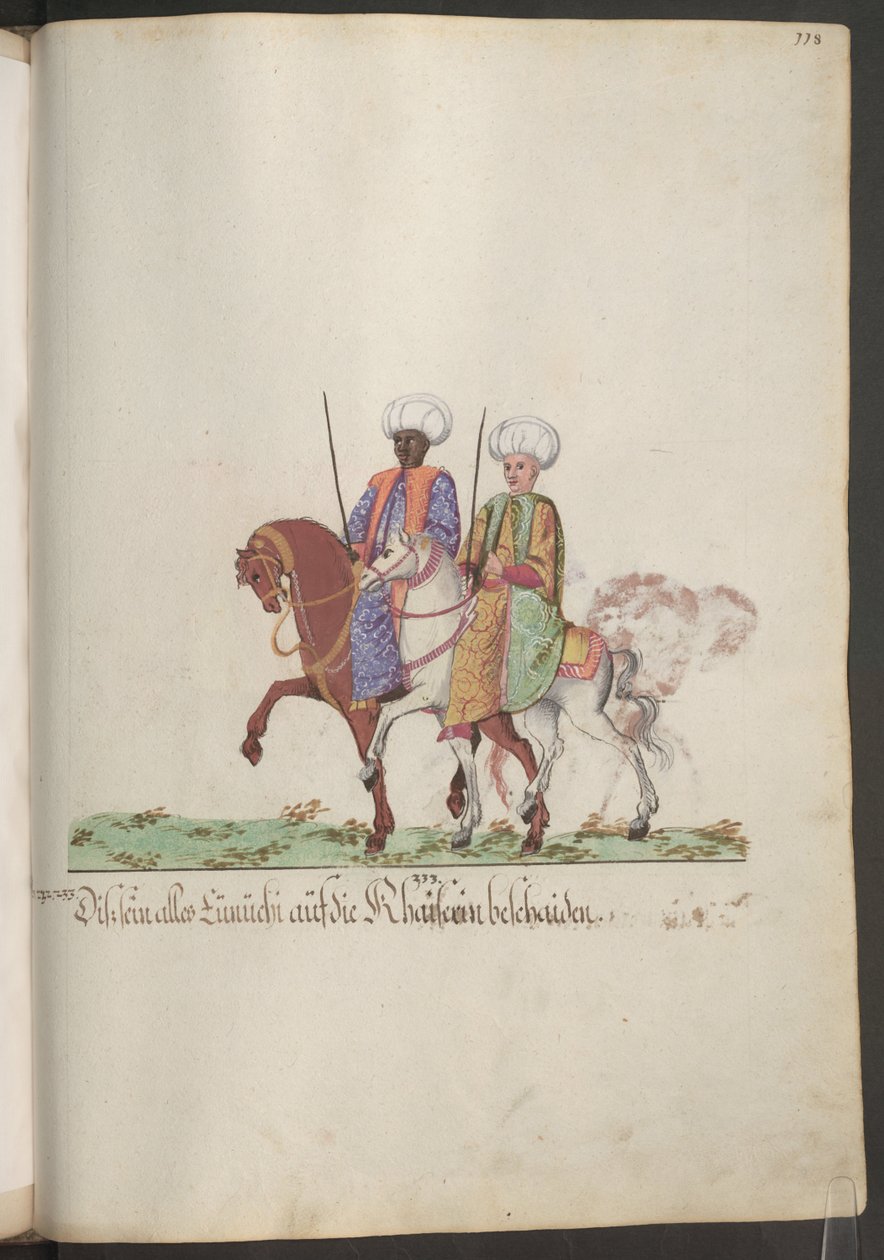 118
233.
Diß sein alles Eünüchi aüf die Khaiserin beschaiden.